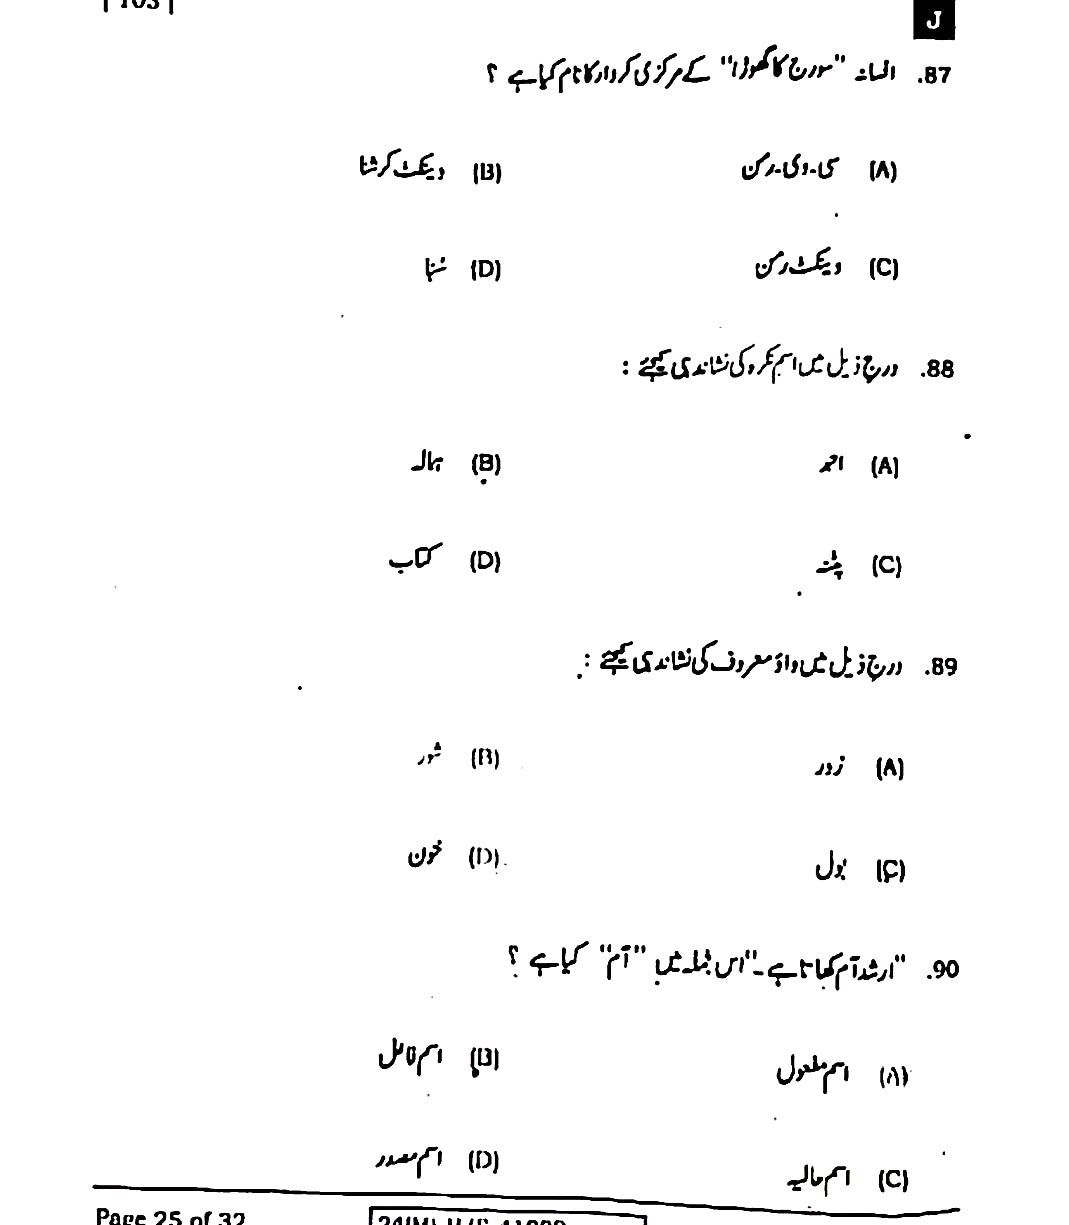 | 103 |
J
87. افسانہ "سورج کا گھوڑا" کے مرکزی کردار کا نام کیا ہے ؟
(A) سی۔وی۔رمن (B) وینکٹ کرشنا
(C) وینکٹ رمن (D) مُنا
88. درج ذیل میں اسم نکرہ کی نشاندہی کیجئے :
(A) احمد (B) ہمالہ
(C) پٹنہ (D) کتاب
89. درج ذیل میں واؤ معروف کی نشاندہی کیجئے :
(A) زور (B) شور
(C) بول (D) خون
90. "ارشد آم کھاتا ہے۔" اس جملہ میں "آم" کیا ہے ؟
(A) اسم مفعول (B) اسم فاعل
(C) اسم حالیہ (D) اسم مصدر
Page 25 of 32